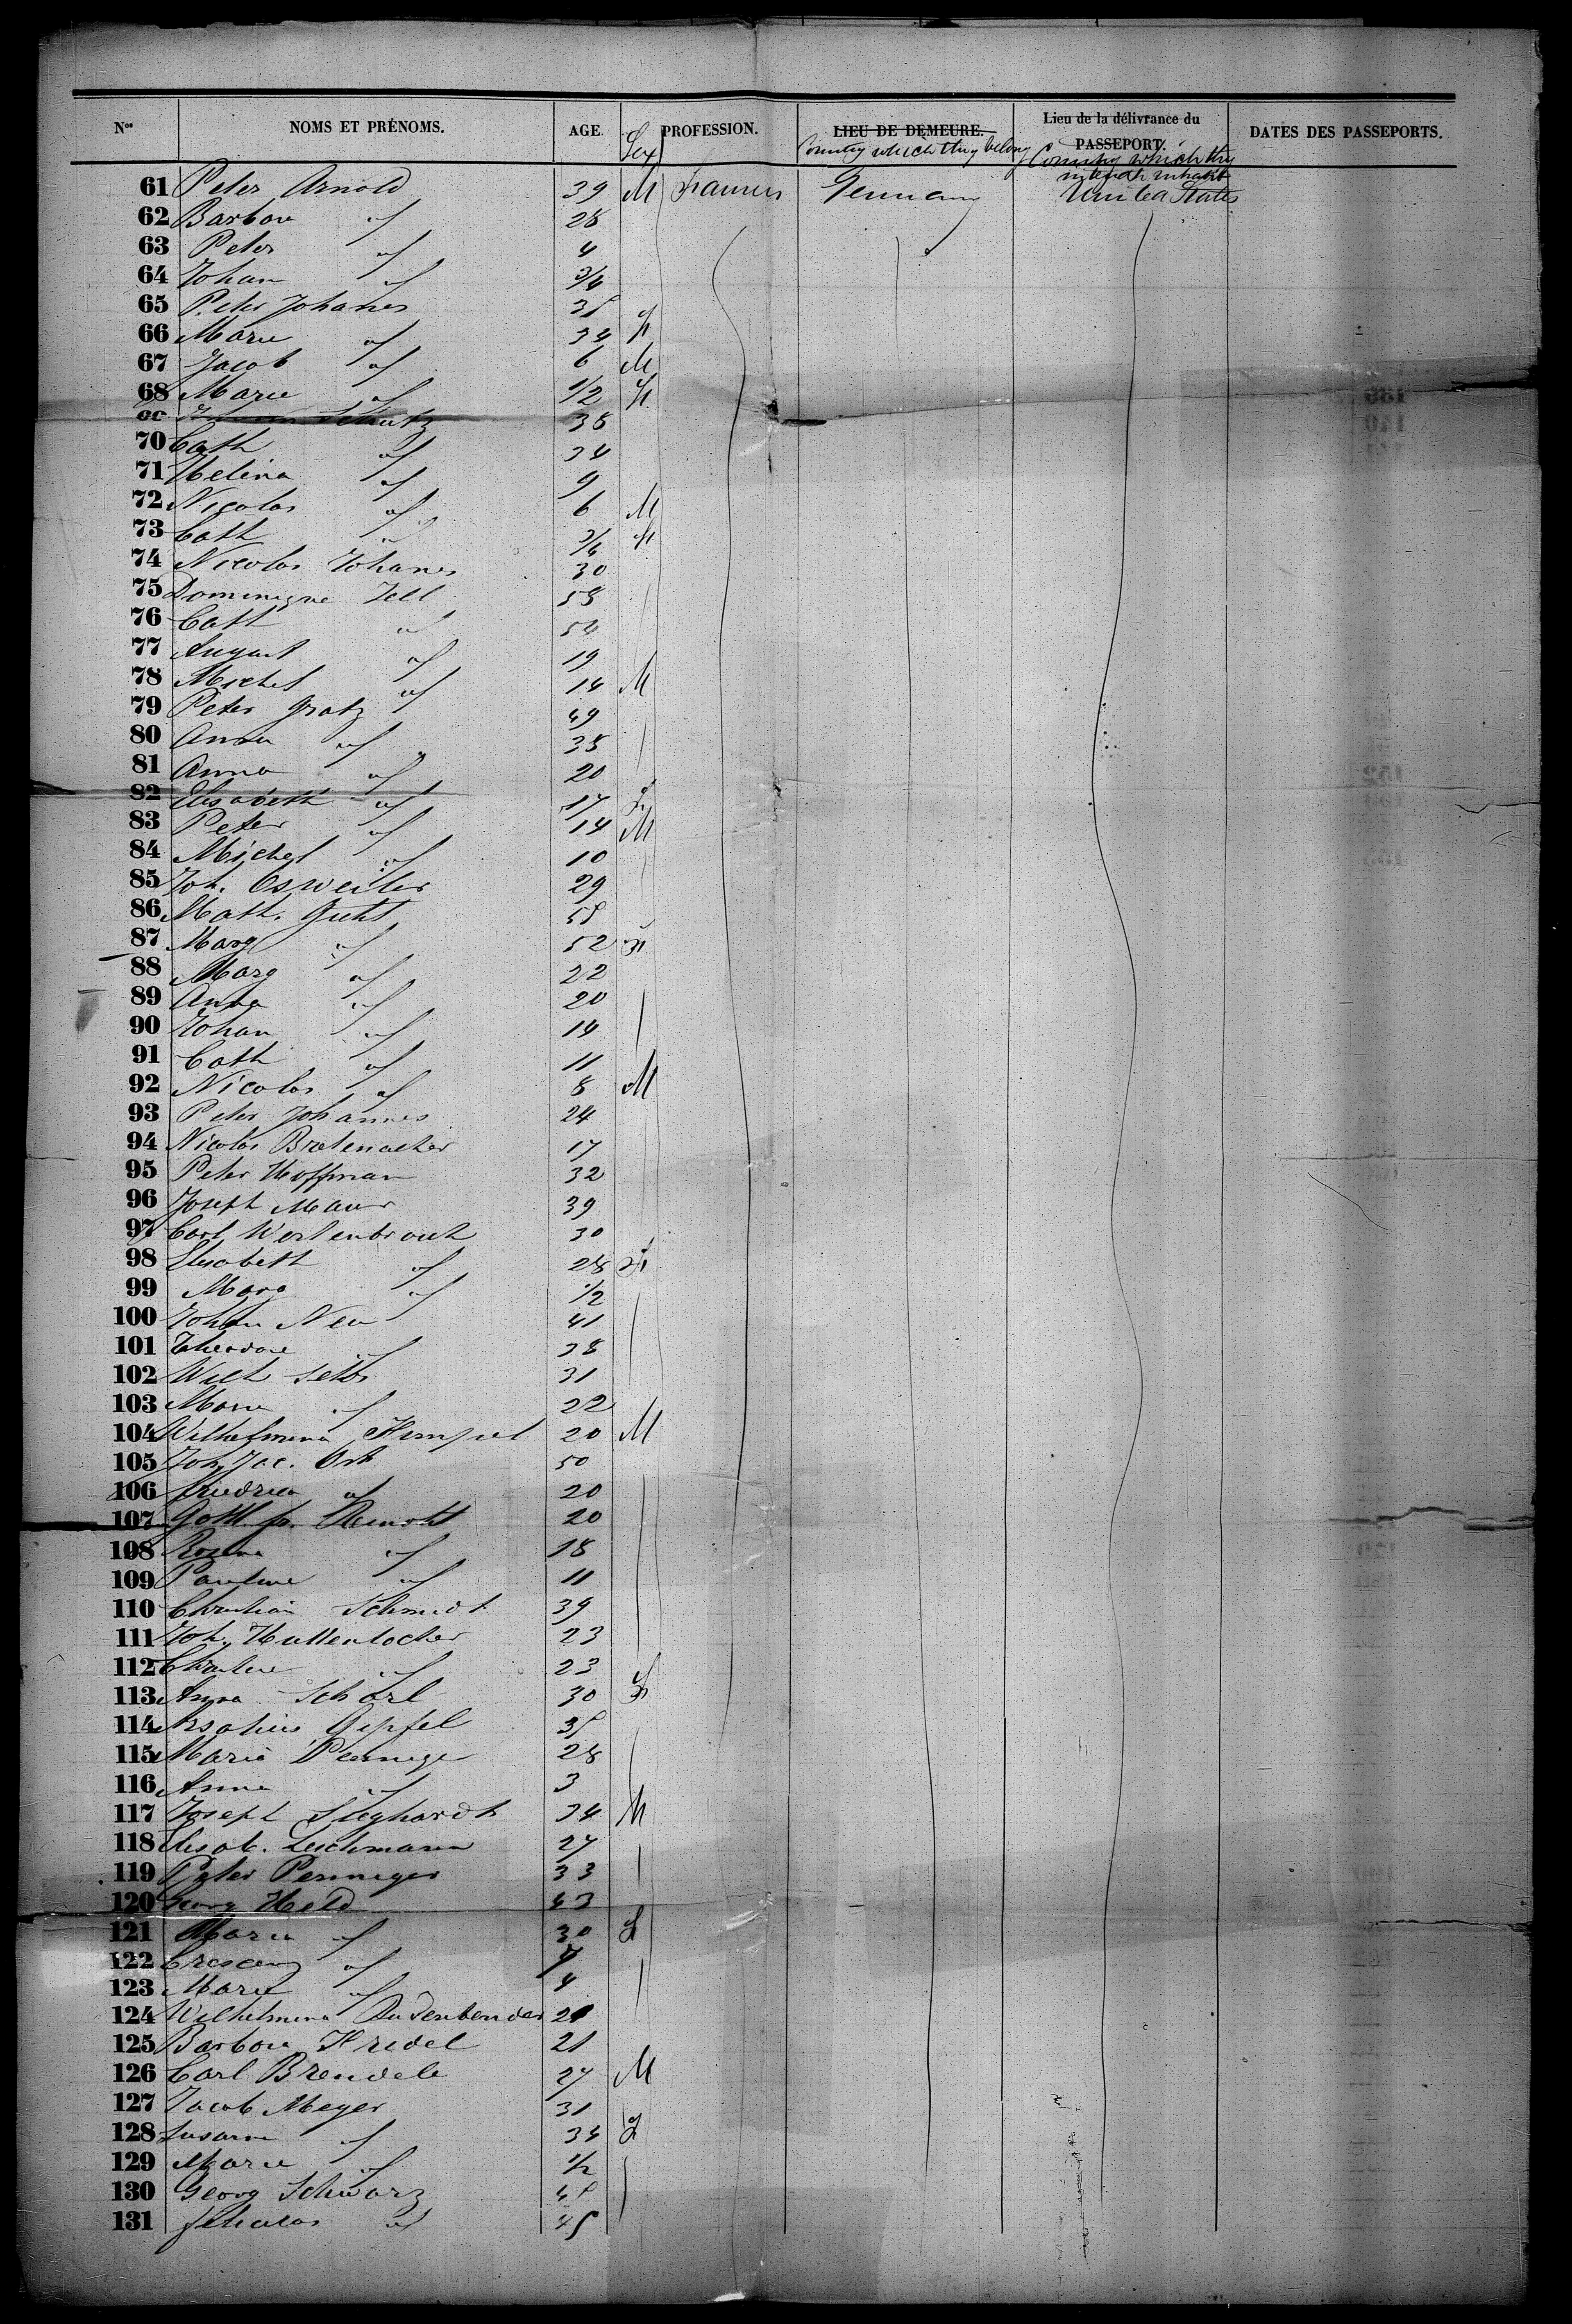 Nos NOMS ET PRÉNOMS. AGE. Sex PROFESSION. LIEU DE DEMEURE. Lieu de la délivrance du PASSEPORT. DATES DES PASSEPORTS.
Country which they belong Country which they intend inhabit
61 Peter Arnold 39 M Farmer Germany United States
62 Barbara " 28
63 Peter " 4
64 Johan " 3/4
65 Peter Johannes 35
66 Marie " 34 F
67 Jacob " 6 M
68 Marie " 1/2 F
69 Schutz 38
70 Cath " 34
71 Helena " 9
72 Nicolas " 6 M
73 Cath " 3/4 F
74 Nicolas Johanes 30
75 Dominique Zell 58
76 Cath " 54
77 August " 19
78 Michel " 14 M
79 Peter Gratz 49
80 Anna " 38
81 Anna " 20
82 Elisabeth " 17 F
83 Peter " 14 M
84 Michel " 10
85 Joh. Osweiler 29
86 Math. 55
87 Marg " 52 F
88 Marg " 22
89 Anna " 20
90 Johan " 14
91 Cath " 11
92 Nicolas " 8 M
93 Peter Johannes 24
94 Nicolas 17
95 Peter Hoffman 32
96 Joseph Maur 39
97 Carl Wertenbruch 30
98 Elisabeth " 28 F
99 Marg " 1/2
100 Johan Neu 41
101 Theodore " 38
102 Wilh 31
103 Marie " 22
104 Wilhelmina Himpel 20 M
105 Joh. Jac. Ort 50
106 Friedrich " 20
107 20
108 Rosina " 18
109 Pauline " 11
110 Christian Schmidt 39
111 Joh. Huttenlocher 23
112 Christine " 23
113 Anna Scharl 30 F
114 Gipfel 35
115 Maria Penniger 28
116 Anna " 3
117 Joseph Sieghardt 34 M
118 Elisab. Leichmann 27
119 Peter Penniger 33
120 Georg Held 43
121 Marie " 30 F
122 Crescenz "
123 Marie " 4
124 Wilhelmina Dudenbender 21
125 Barbara Kridel 21
126 Carl Brendele 27 M
127 Jacob Meyer 31
128 Susanna " 34 F
129 Marie " 1/2
130 Georg Schwarz 45
131 " 45